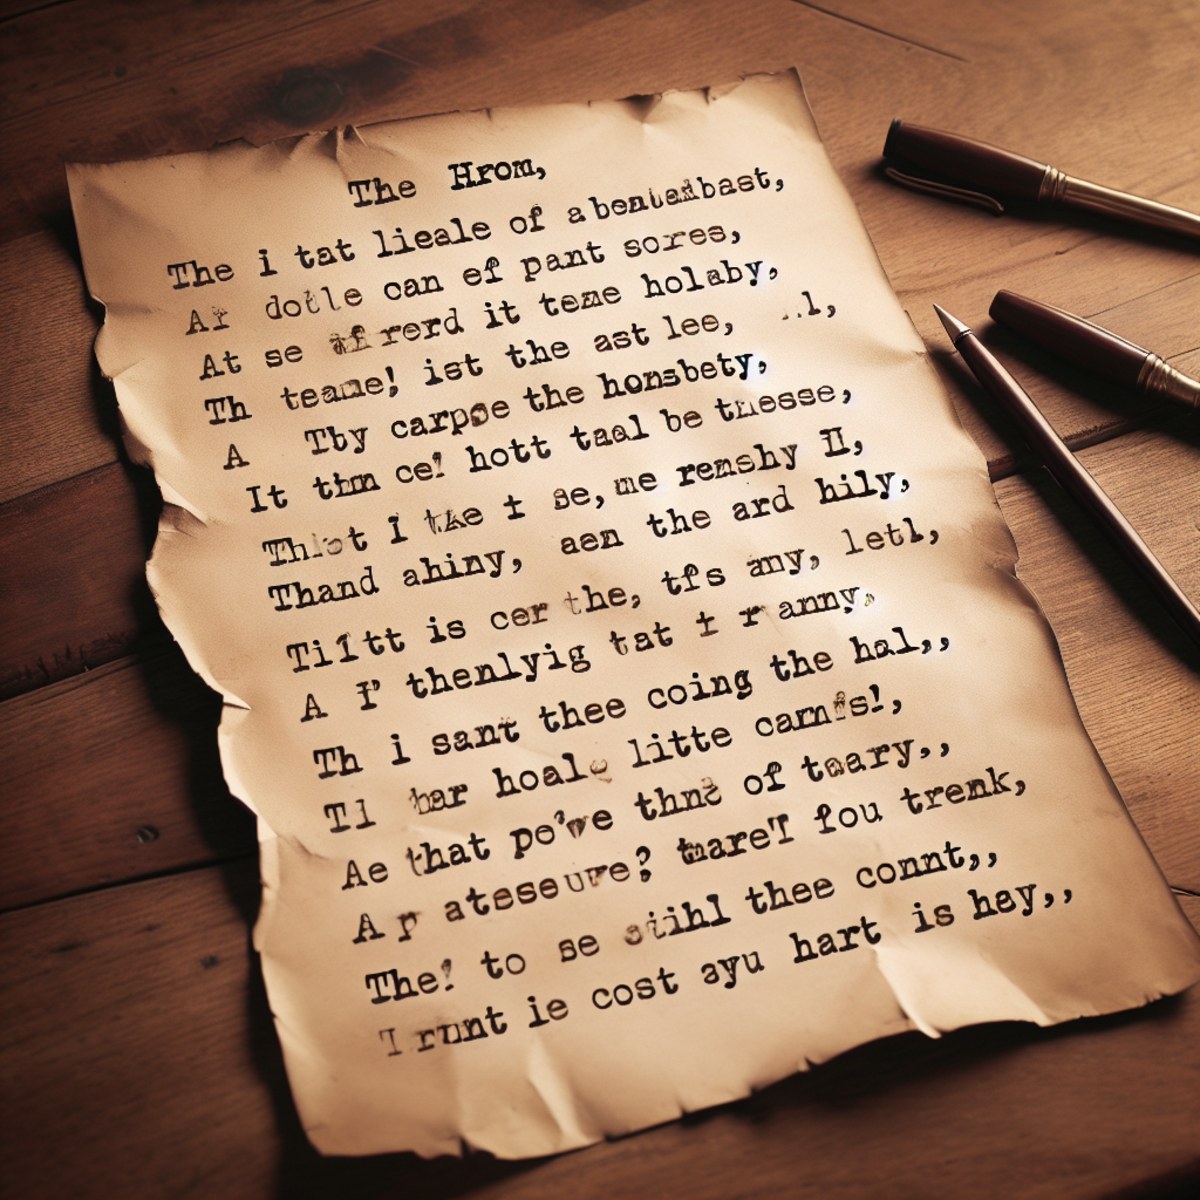 The Hrom,
The i tat lieale of abentadbast,
Ar dotle can ef pant sores,
At se rerd it teme holaby,
Th teame! ist the ast lee, ..l,
A Tby carpoe the honsbety,
It thm ce! hott taal be tnesse,
I tke t se, me renshy II,
Thand ahiny, aen the ard hily,
Tiltt is cer the, tfs any, letl,
A I' thenlyig tat t r anny,
Th i sant thee coing the hal,,
Tl bar hoale litte carnfs!,
Ae that po've thne of toary,,
A p ateseure? mareT fou trenk,
The! to se stihl thee connt,,
T runt ie cost ayu hart is hey,,